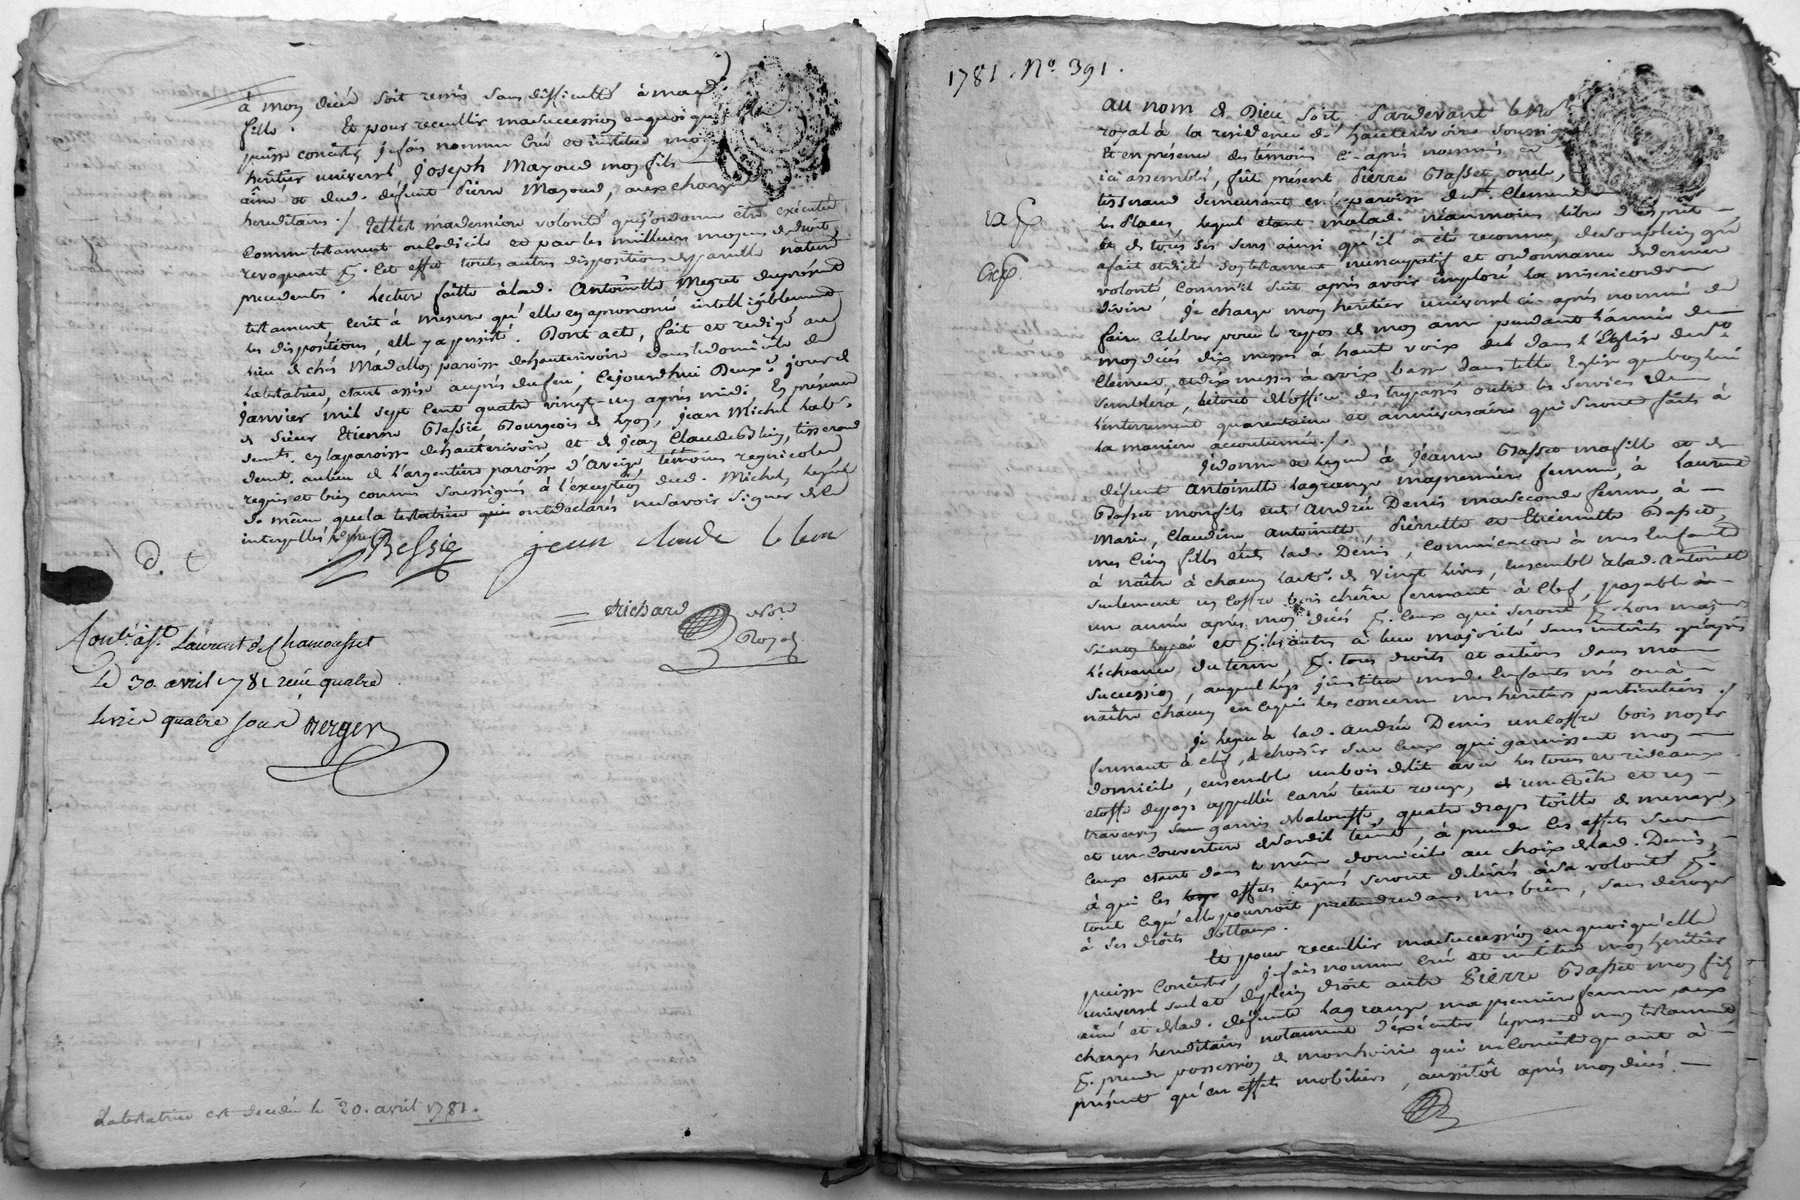 à mon décès soit remis sans difficulté à mad.
fille. Et pour recueillir ma succession en quoi qu'elle
puisse consister, je fais nomme crée et institue mon
heritier universel, Joseph Mayoud mon fils
aîné et dud. défunt Pierre Mayoud, aux charges
hereditaires ./ telle est ma derniere volonté que j'ordonne être exécutée
comme testament ou codicile et par les meilleurs moyens de droit,
revoquant p. cet effet toutes autres dispositions de pareille nature
precedentes. Lecture faitte à lad. Antoinette Megret du présent
testament, ecrit à mesure qu'elle en a prononcé intelligiblement
les dispositions, elle y a persisté. Dont acte, fait et redigé au
lieu de chés Madallon paroisse de hauterivoire dans le domicile de
la testatrice, etant assise auprès du feu, cejourd'hui deux.e jour de
janvier mil sept cent quatre vingt-un après midi. En présence
de sieur Etienne Bessié Bourgeois de Lyon, jean Michel lab.r
demt. en la paroisse de hauterivoire et de jean Claude Blein, tisserand
demt. au lieu de l'argentiere paroisse d'aveize témoins regnicoles
requis et bien connus soussignés à l'exception dud. Michel, lequel
de même que la testatrice qui ont déclarés ne savoir signer de ce
interpellés
Bessie jean claude
D. C
Richard Not.e
Royal
Cont.é à St. Laurent de Chamousset
Le 30. avril 1781 reçu quatre
livres quatre sous Berger
La testatrice est decedée le 20. avril 1781.
1781. N.o 391.
au nom de Dieu soit Pardevant le No
royal à la residence de hauterivoire soussigné
Et en présence des témoins ci-après nommés et
ici assemblés, fût présent Pierre Basset, oncle,
tisserand demeurant en la paroisse de St. Clement
les Places, lequel etant malade neanmoins libre d'esprit
et de tous ses sens ainsi qu'il a été reconnu, de son plein gré
a fait et dicté son testament nuncupatif et ordonnance de derniere
volonté comm'il suit après avoir imploré la misericorde
divine, je charge mon heritier universel ci-après nommé de
faire celebrer pour le repos de mon ame pendant l'année de
mon decès dix messes à haute voix dans l'Eglise dud. St.
Clement, et dix messes à voix basse dans telle Eglise que bon lui
semblera, et l'office des trepassés outre les services de
l'enterrement quarantaine et anniversaire qui seront faits à
la maniere accoutumée ./.
Je donne et legue à Jeanne Basset ma fille et de
défunte Antoinette Lagrange ma premiere femme, à Laurent
Basset mon fils et d'Andrée Denis ma seconde femme, à
Marie, Claudine Antoinette Pierrette et Etiennette Basset,
mes cinq filles et de lad. Denis, comm'encore à mes enfants
à naître à chacun la som.e de vingt livres, ensemble à lad. Antoinette
seulement un coffre bois chêne fermant à clef, payable à
un année après mon décès p. ceux qui seront p. lors majeurs
et p. les autres à leur majorité sans interêts qu'après
l'echeance du terme, p. tous droits et actions dans ma
succession, auquel legs j'institue mesd. enfants nés ou à
naître chacun en ce qui les concerne mes heritiers particuliers ./
Je legue à lad. Andrée Denis un coffre bois noyer
fermant à clef, à choisir sur ceux qui garnissent mon
domicile, ensemble un bois de lit avec les tours et rideaux
etoffe de pays appellée carré teint rouge, et un
traversin garnis de baloufse, quatre draps toille de menage,
et un couverture à prendre les effets sur
ceux etant dans le même domicile au choix de lad. Denis,
à qui les effets legués seront delivrés à sa volonté p.
tout ce qu'elle pourroit pretendre dans mes biens, sans deroger
à ses droits dottaux.
Et pour recueillir ma succession en quoi qu'elle
puisse consister, je fais nomme crée et institue mon heritier
universel seul et de plein droit autre Pierre Basset mon fils
aîné et de lad. défunte Lagrange ma premiere femme, aux
charges hereditaires notamment d'éxécuter le present mon testament,
p. prendre possession de mon hoirie qui ne consiste quant à
présent qu'en effets mobiliers, aussitôt après mon décès.